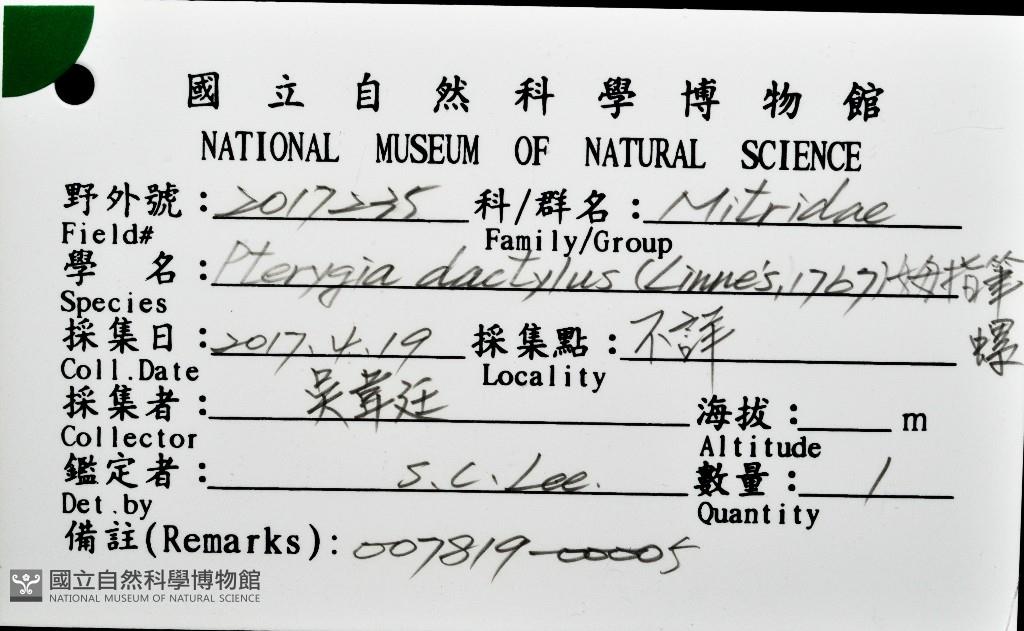 國立自然科學博物館
NATIONAL MUSEUM OF NATURAL SCIENCE
野外號：2017235 科/群名：Mitridae
Field# Family/Group
學 名：Pterygia dactylus (Linne's, 1767) 拇指筆螺
Species
採集日：2017.4.19 採集點：不詳
Coll.Date Locality
採集者：吳葦廷 海拔： m
Collector Altitude
鑑定者：S.C.Lee. 數量：1
Det.by Quantity
備註(Remarks)：007819-00005
國立自然科學博物館
NATIONAL MUSEUM OF NATURAL SCIENCE